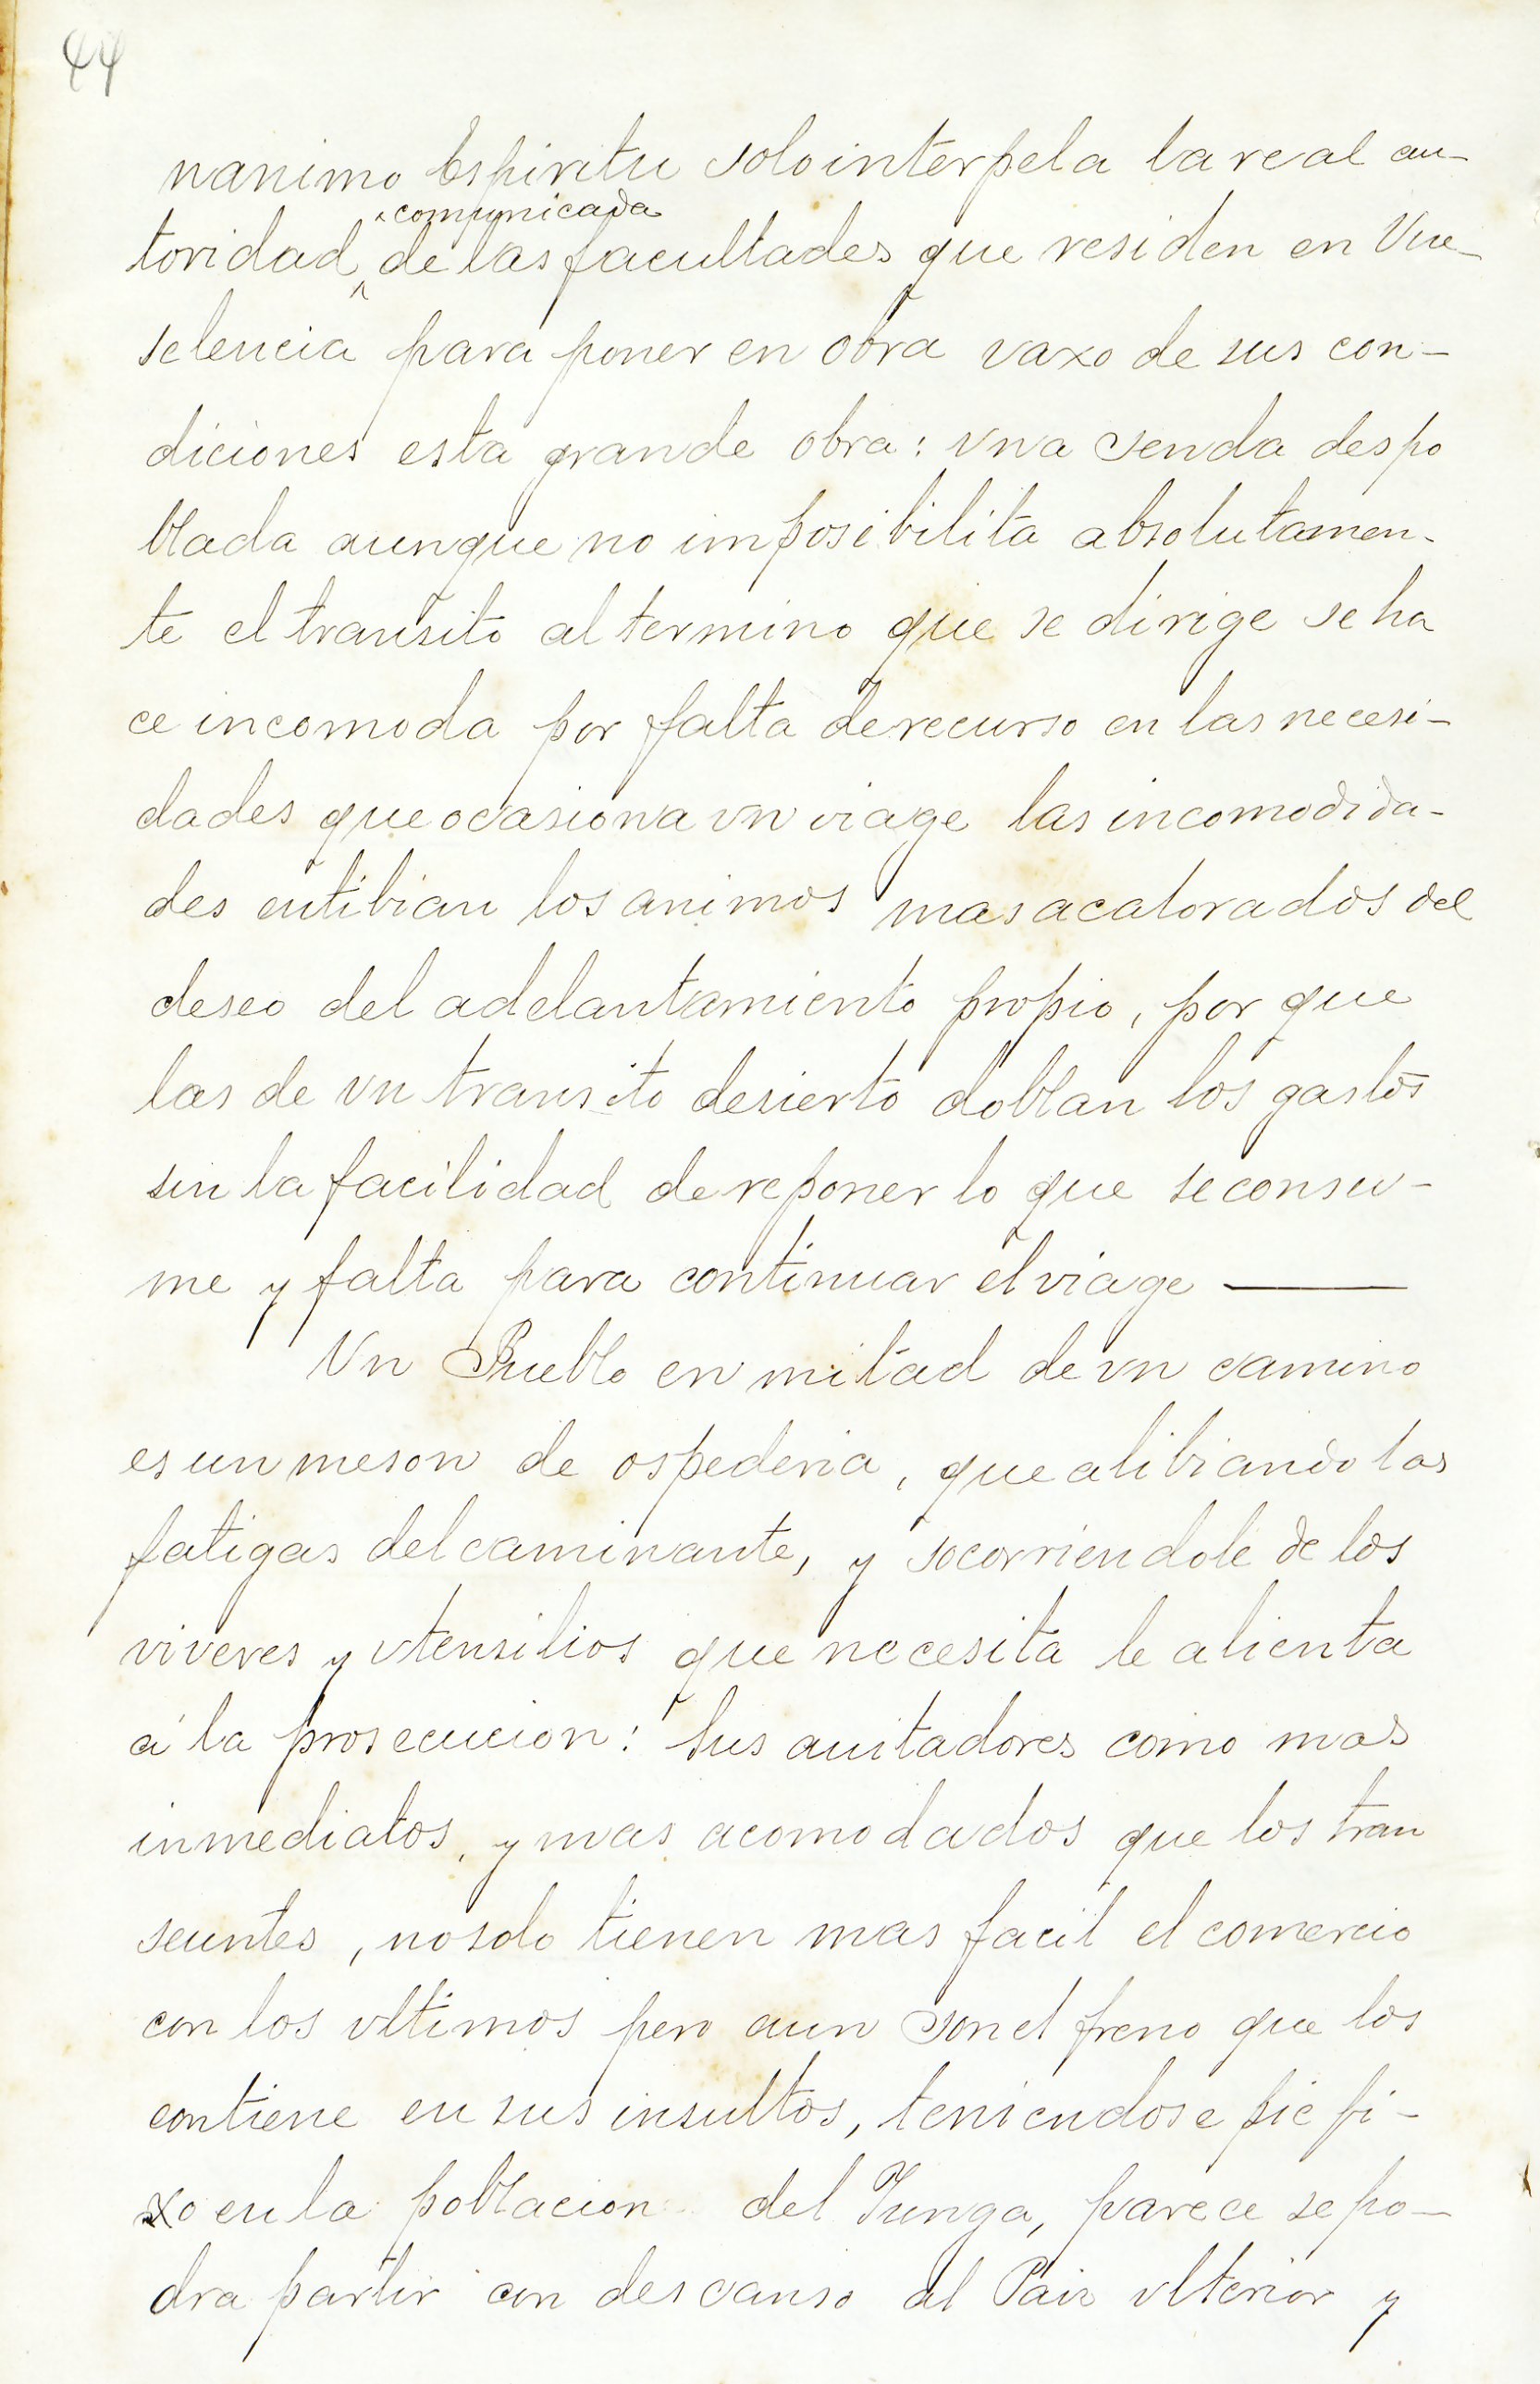 44
nanimo Espiritu solo interpela la real au-
comunicada
toridad de las facultades que residen en Vue-
selencia para poner en obra vaxo de sus con-
diciones esta grande obra: vna senda despo
blada aunque no imposibilita absolutamen-
te el transito al termino que se dirige se ha
ce incomoda por falta de recurso en las necesi-
dades que ocasiona vn viage las incomodida-
des entibian los animos mas acalorados del
deseo del adelantamiento propio, por que
las de vn transito desierto doblan los gastos
sin la facilidad de reponer lo que se consu-
me y falta para continuar el viage —
Vn Pueblo en mitad de vn camino
es un meson de ospederia, que alibiando las
fatigas del caminante, y socorriendole de los
viveres y vtensilios que necesita le alienta
a la prosecucion: sus auitadores como mas
inmediatos, y mas acomodados que los tran
seuntes, no solo tienen mas facil el comercio
con los vltimos pero aun son el freno que los
contiene en sus insultos, teniendose pie fi-
xo en la poblacion del Tunga, parece se po-
dra partir con descanso al Pais vlterior y